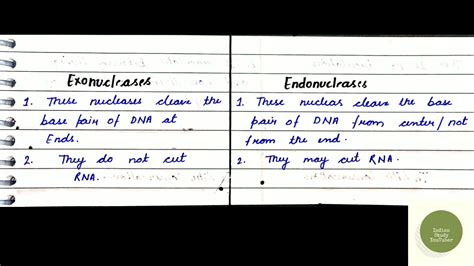 Exonucleases
1. These nucleases cleave the
base pair of DNA at
Ends.
2. They do not cut
RNA.
Endonucleases
1. These nucleas cleave the base
pair of DNA from center/not
from the end.
2. They may cut RNA.
Indian
Study
YouTuber